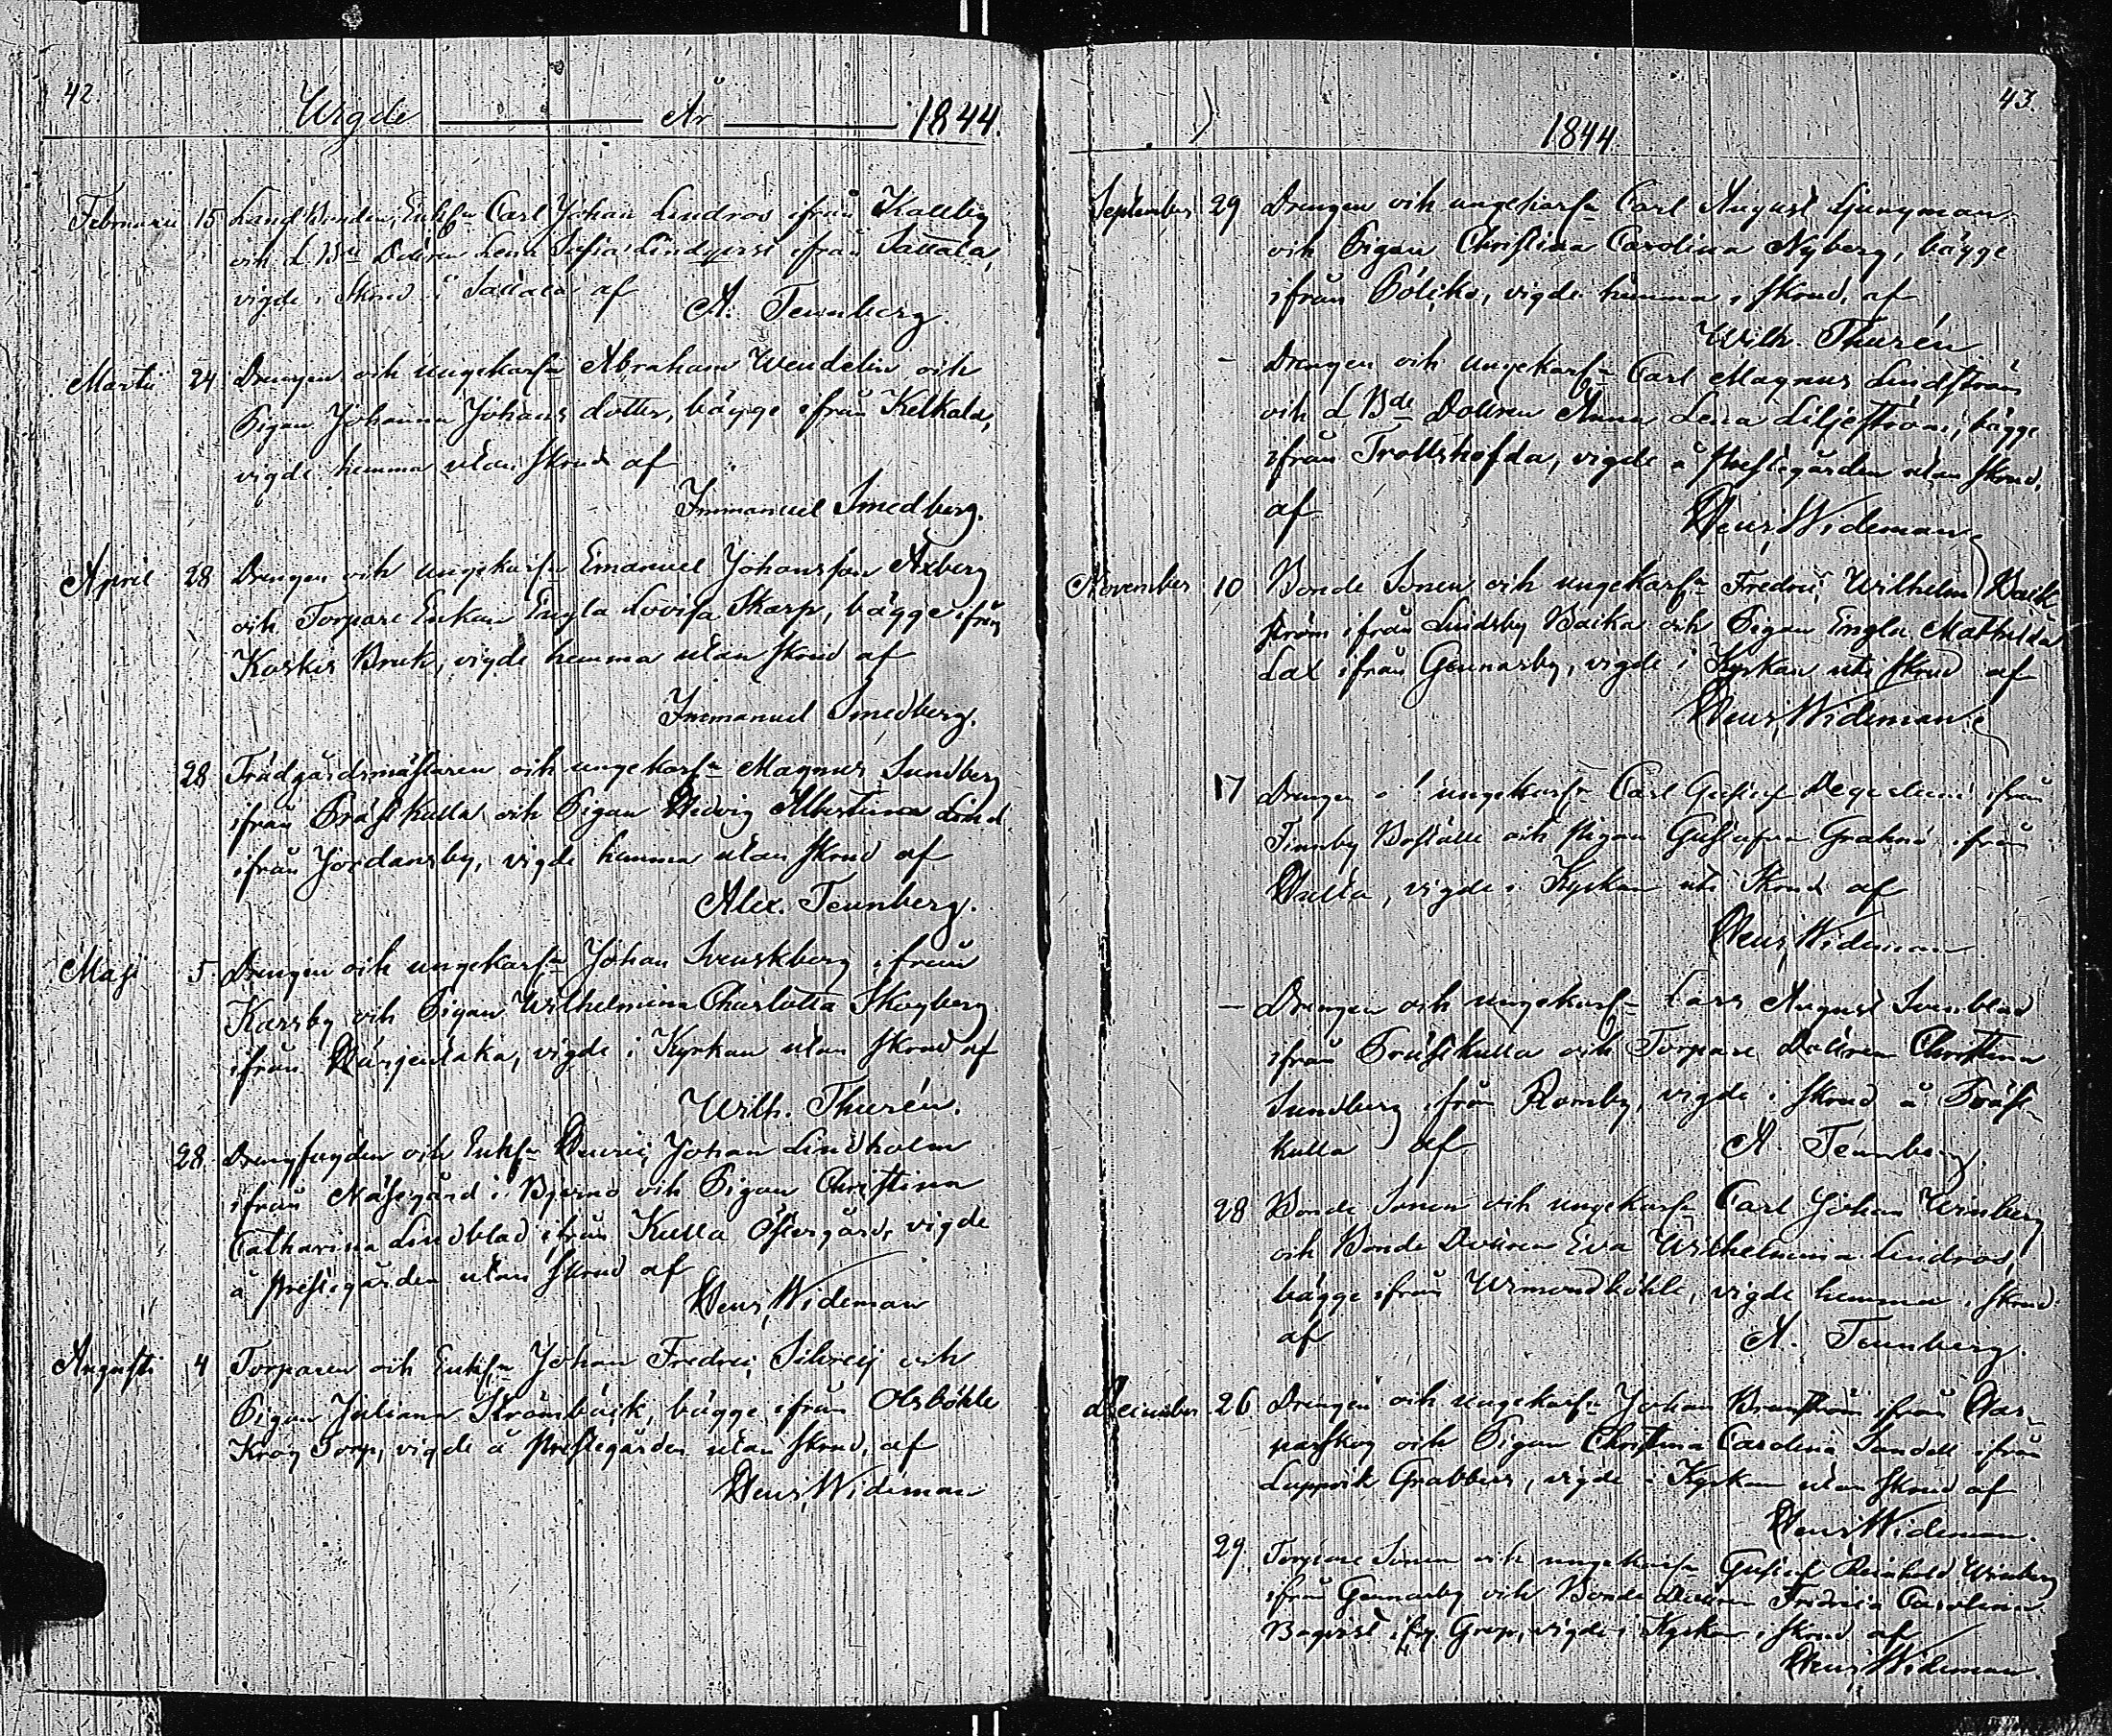 42
Wigde År 1844.
Februarii 15 Landbonden, Enkl:n Carl Johan Lindros ifrån Kallby
och L Bde Dottren Lena Sofia Lindqvist ifrån Sattala,
vigde i skrud i Sattala af
A. Tennberg.
Martii 24 Drengen och ungekarln Abraham Wendelin och
Pigan Johanna Johans dotter, bägge ifrån Kelkala,
vigde hemma utan skrud af
Immanuel Smedberg.
April 28 Drengen och ungekarln Emanuel Johansson Axberg
och Torpare Enkan Engla Lovisa Skarp, bägge ifrån
Koskis Bruk, vigde hemma utan skrud af
Immanuel Smedberg.
28 Trädgårdsmästaren och ungekarln Magnus Sundberg
ifrån Prästkulla och Pigan Hedvig Albertina Lind
ifrån Jordansby, vigde hemma utan skrud af
Alex. Tennberg.
Maji 5 Drengen och ungekarln Johan Svenskberg ifrån
Karsby och Pigan Wilhelmina Charlotta Skogberg
ifrån vigde i Kyrkan utan skrud af
Wilh. Thurén.
28 Drengfogden och Enkln Henric Johan Lindholm
ifrån Näsegård i Bjerno och Pigan Christina
Catharina Lindblad ifrån Kulla Östergård, vigde
å Prestegården utan skrud af
Henr. Wideman
Augusti 4 Torparen och Enkln Johan Fredric Silvreij och
Pigan Juliana Strömbäck, bägge ifrån Olsböhle
Krog Torp, vigde å Prestegården utan skrud, af
Henr. Wideman
43
1844
September 29 Drengen och ungekarln Carl August Ljungman
och Pigan Christina Carolina Nyberg, bägge
ifrån vigde hemma i skrud, af
Wilh. Thurén
- Drengen och ungekarln Carl Magnus Lindström
och L Bde Dottren Anna Lena Liljeström, bägge
ifrån Trollshofda, vigde å Prestegården utan skrud,
af
Henr. Wideman
November 10 Bonde Sonen och ungekarln Fredric Wilhelm Back-
ström ifrån Lindsby Backa och Pigan Engla Mathilda
Lax ifrån Gennarby, vigde i Kyrkan uti skrud af
Henr. Wideman
17 Drengen o ungekarln Carl Gustaf ifrån
Finnby Boställe och Pigan Gustafva ifrån
Hulta, vigde i Kyrkan uti skrud af
Henr. Wideman
- Drengen och ungekarln Lars August Svenblad
ifrån Prästkulla och Torpare Dottren Christina
Sundberg ifrån Romby, vigde i skrud å Präst-
kulla af
A. Tennberg.
28 Bonde Sonen och ungekarln Carl Johan Winberg
och Bonde Dottren Eva Wilhelmina Lindros,
bägge ifrån Wimondböhle, vigde hemma i skrud
af
A. Tennberg.
December 26 Drengen och ungekarln Johan Brunström ifrån Har-
parskog och Pigan Christina Carolina Sandell ifrån
Lappvik Grabbers, vigde i Kyrkan utan skrud af
Henr. Wideman.
29 Torpare Sonen och ungekarln Gustaf Reinhold Winberg
ifrån Gennarby och Bonde Dottren Fredrica Carolina
Bagvist ifrn Grop, vigde i Kyrkan i skrud af
Henr. Wideman.